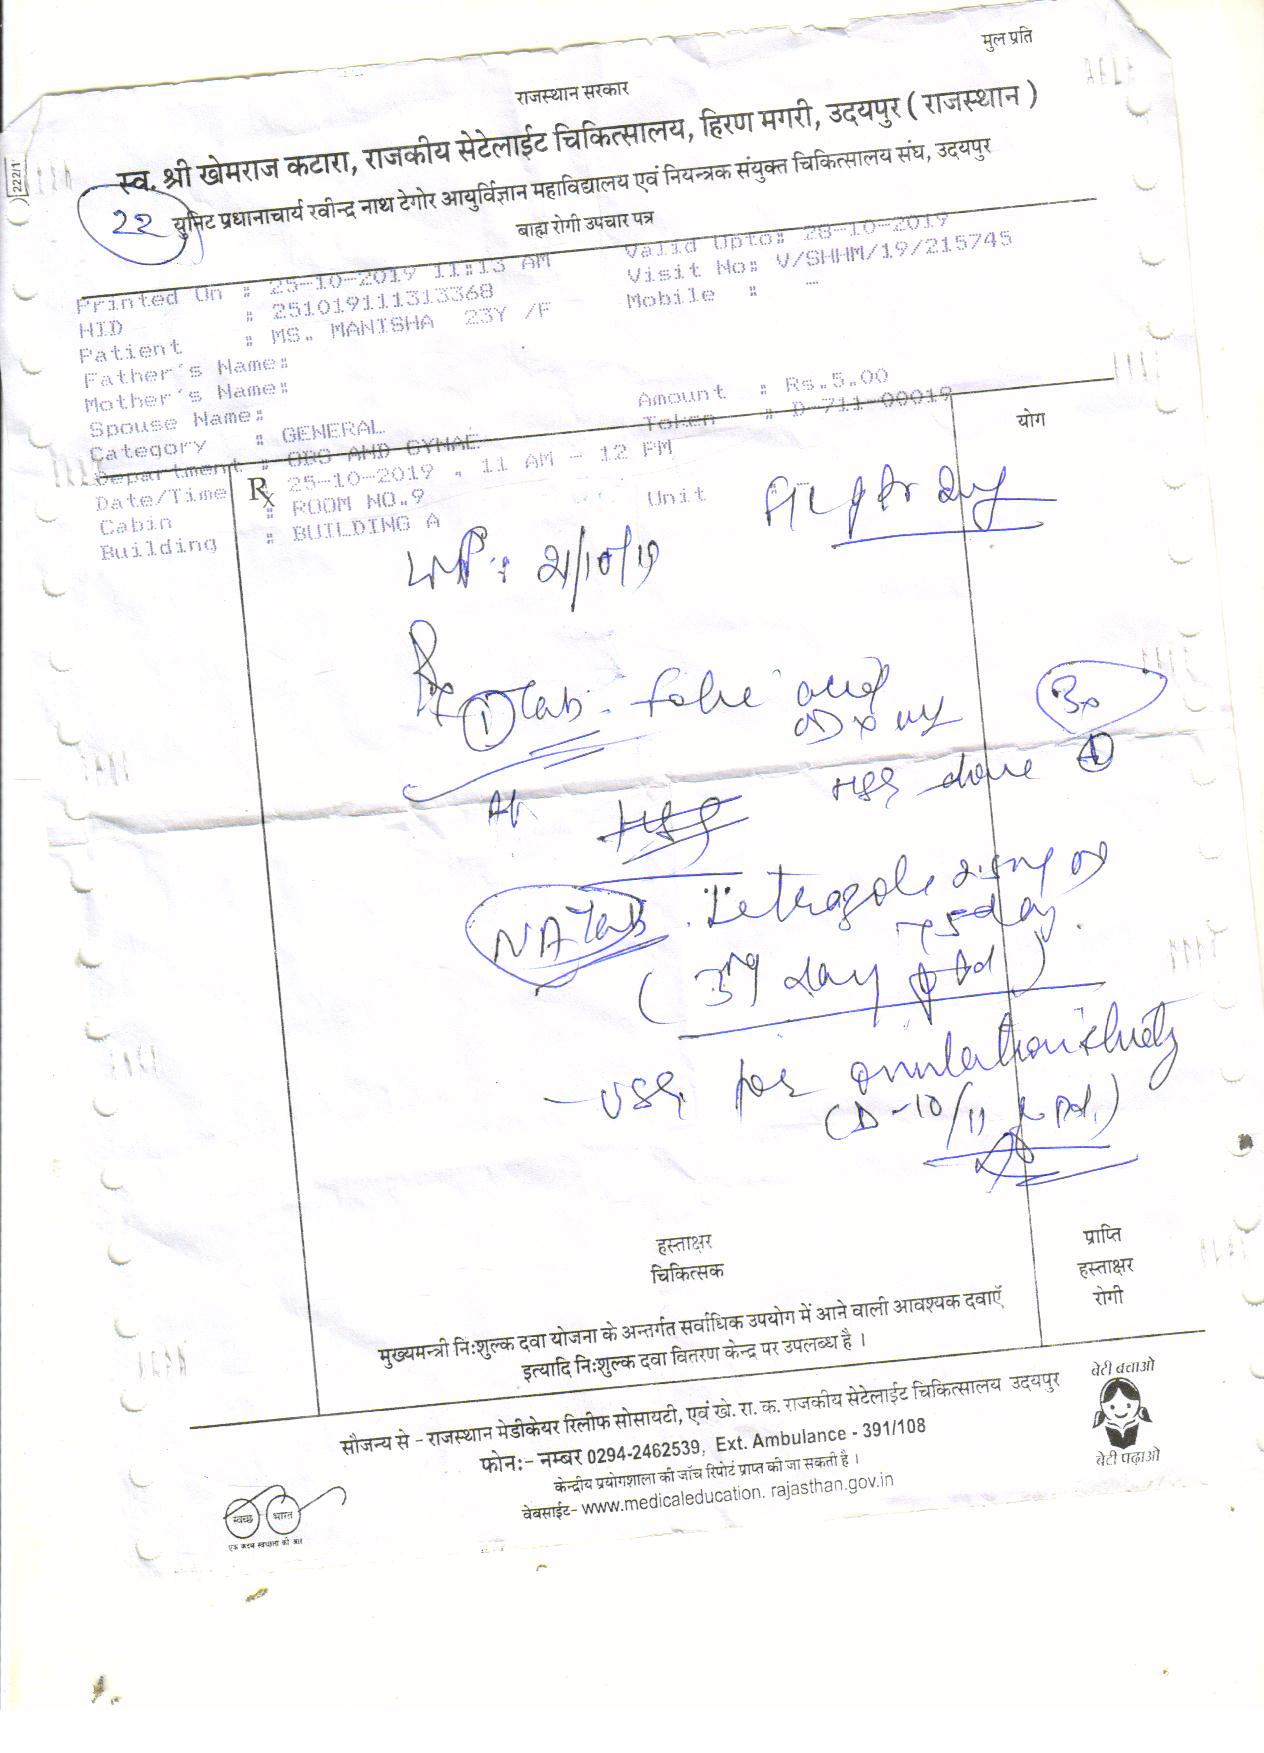 मुल प्रति
राजस्थान सरकार
स्व. श्री खेमराज कटारा, राजकीय सेटेलाईट चिकित्सालय, हिरण मगरी, उदयपुर ( राजस्थान )
22 युनिट प्रधानाचार्य रवीन्द्र नाथ टेगोर आयुर्विज्ञान महाविद्यालय एवं नियन्त्रक संयुक्त चिकित्सालय संघ, उदयपुर
बाह्य रोगी उपचार पत्र
Printed On : 25-10-2019 11:13 AM Valid Upto: 28-10-2019
HID : 251019111313368 Visit No: V/SHHM/19/215745
Patient : MS. MANISHA 23Y /F Mobile : -
Father's Name:
Mother's Name:
Spouse Name: Amount : Rs.5.00
Category : GENERAL Token : D-711-00019
Department : OBG AND GYNAE
योग
Date/Time : 25-10-2019 , 11 AM - 12 PM
Cabin : ROOM NO.9 Unit
Building : BUILDING A
Rx
21/10/19
Rx ① Tab. folic acid
OD x
HSG done
NA Tab. Letrozole 2.5mg OD
x 5 day
(3rd day of Pd)
- USG for ovulation study
(D-10/11 of Pd.)
हस्ताक्षर
चिकित्सक
प्राप्ति
हस्ताक्षर
रोगी
मुख्यमन्त्री नि:शुल्क दवा योजना के अन्तर्गत सर्वाधिक उपयोग में आने वाली आवश्यक दवाएँ
इत्यादि नि:शुल्क दवा वितरण केन्द्र पर उपलब्ध है ।
सौजन्य से - राजस्थान मेडीकेयर रिलीफ सोसायटी, एवं खे. रा. क. राजकीय सेटेलाईट चिकित्सालय उदयपुर
फोन:- नम्बर 0294-2462539, Ext. Ambulance - 391/108
केन्द्रीय प्रयोगशाला की जॉच रिपोर्ट प्राप्त की जा सकती है ।
वेबसाईट- www.medicaleducation. rajasthan.gov.in
बेटी बचाओ
बेटी पढ़ाओ
स्वच्छ भारत
एक कदम स्वच्छता की ओर